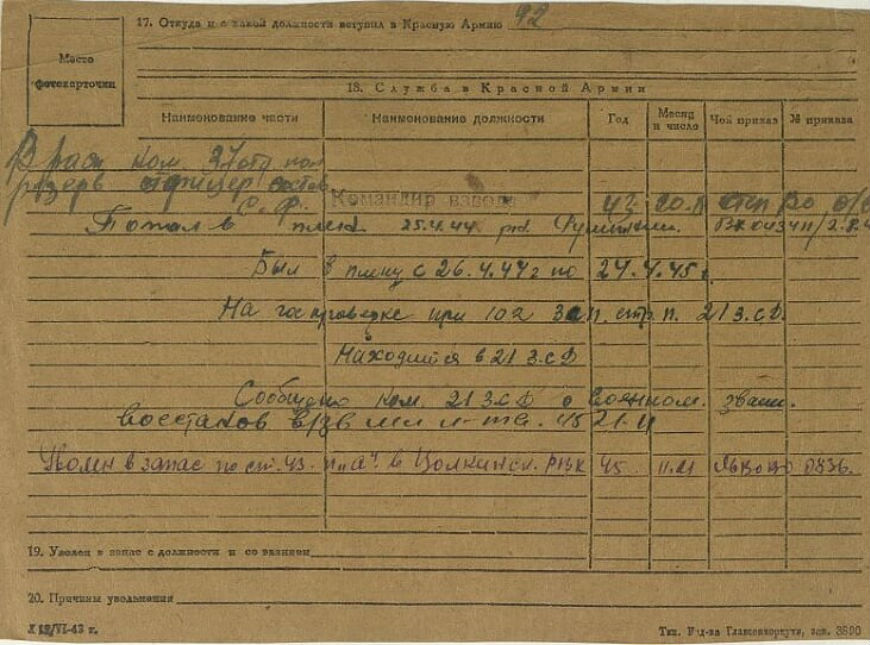 17. Откуда и с какой должности вступил в Красную Армию 92
Место
фотокарточки
18. Служба в Красной Армии
Наименование части Наименование должности Год Месяц и число Чей приказ № приказа
В расп ком. 37 стр пол
резерв офицер состав
С. Ф. Командир взвода 43 20.8
Попал в плен 25.4.44 2.8.4
Был в плену с 26.4.44 г по 24.4.45 г.
На госпроверке при 102 Зап. стр. п. 21 з.с.д.
Находится в 21 з с д
Сообщено ком. 21 з с д о военном. зван.
восстанов в/зв мл л-та. 45 21.11
Уволен в запас по ст. 43. п. "а" в РВК 45 11.21 ЛьвВО 0836.
19. Уволен в запас с должности и со званием
20. Причины увольнения
Л 19/VI-43 г.
Тип. зак. 3890